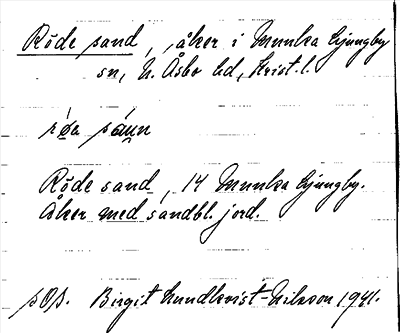 Röde sand, åker i Munka Ljungby
sn, N. Åsbo hd, Krist. l.
röa sann
Röde sand, 14 Munka Ljungby.
Åker med sandbl. jord.
Birgit Lundkvist-Nilsson 1941.